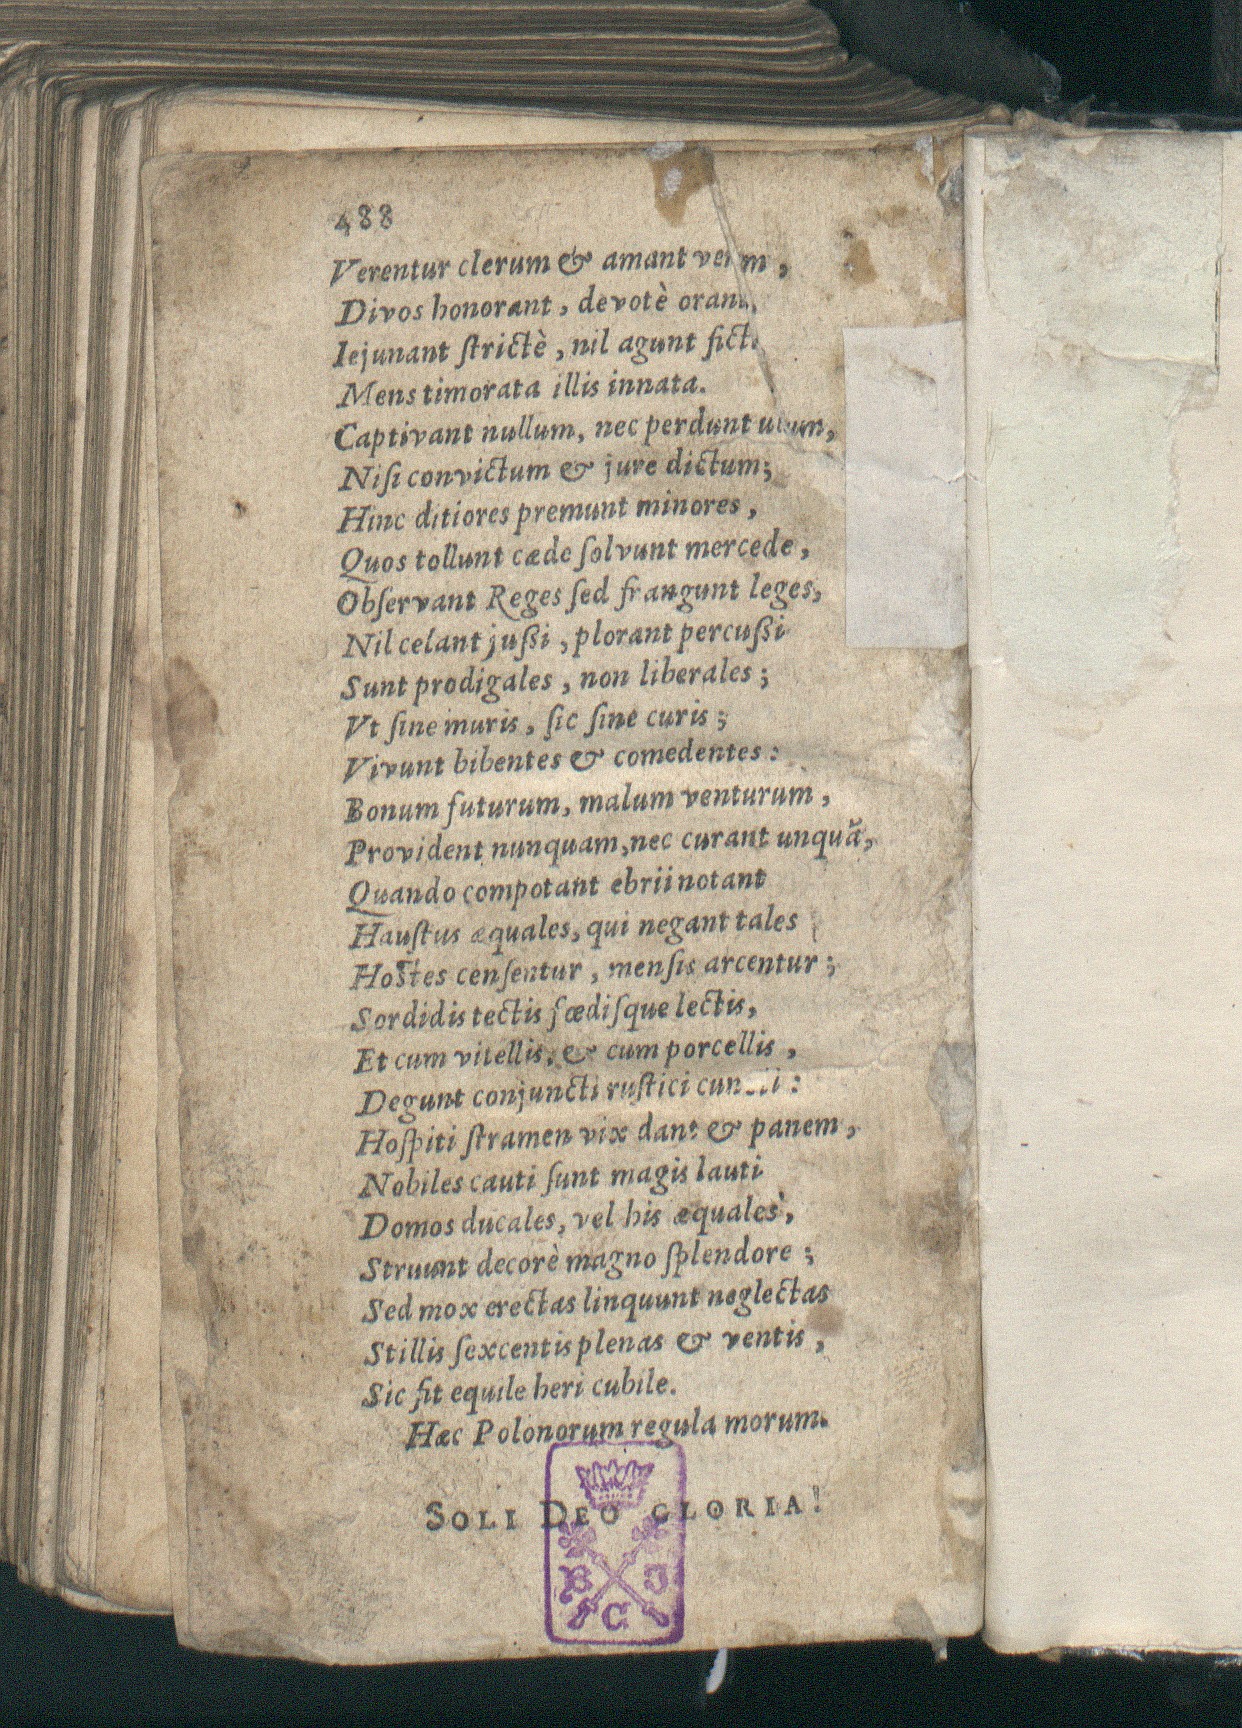 488
Verentur clerum & amant ,
Divos honorant, devotè
Iejunant ſtrictè, nil agunt
Mens timorata illis innata.
Captivant nullum, nec perdunt
Niſi convictum & jure dictum;
Hinc ditiores premunt minores,
Quos tollunt cæde ſolvunt mercede,
Obſervant Reges ſed frangunt leges,
Nil celant juſſi, plorant percuſſi
Sunt prodigales, non liberales;
Vt ſine muris, ſic ſine curis;
Vivunt bibentes & comedentes:
Bonum futurum, malum venturum,
Provident nunquam, nec curant unquã,
Quando compotant ebrii notant
Hauſtus æquales, qui negant tales
Hoſtes cenſentur, menſis arcentur;
Sordidis tectis fœdiſque lectis,
Et cum vitellis, & cum porcellis,
Degunt conjuncti ruſtici
Hoſpiti ſtramen vix dant & panem,
Nobiles cauti ſunt magis lauti
Domos ducales, vel his æquales,
Struunt decorè magno ſplendore;
Sed mox erectas linquunt neglectas
Stillis ſexcentis plenas & ventis,
Sic fit equile heri cubile.
Hæc Polonorum regula morum.
SOLI DEO GLORIA!
B J
C